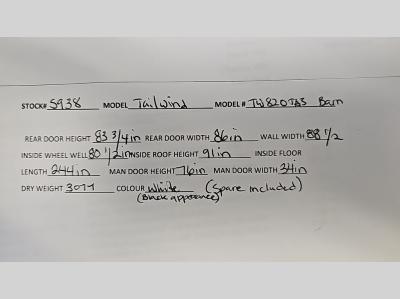 STOCK# 5938 MODEL Tailwind MODEL# TW820TAS Barn
REAR DOOR HEIGHT 83 3/4 in REAR DOOR WIDTH 86 in WALL WIDTH 88 1/2
INSIDE WHEEL WELL 80 1/2 in INSIDE ROOF HEIGHT 91 in INSIDE FLOOR
LENGTH 244 in MAN DOOR HEIGHT 76 in MAN DOOR WIDTH 34 in
DRY WEIGHT 3077 COLOUR White (Spare included)
(Black appearance)